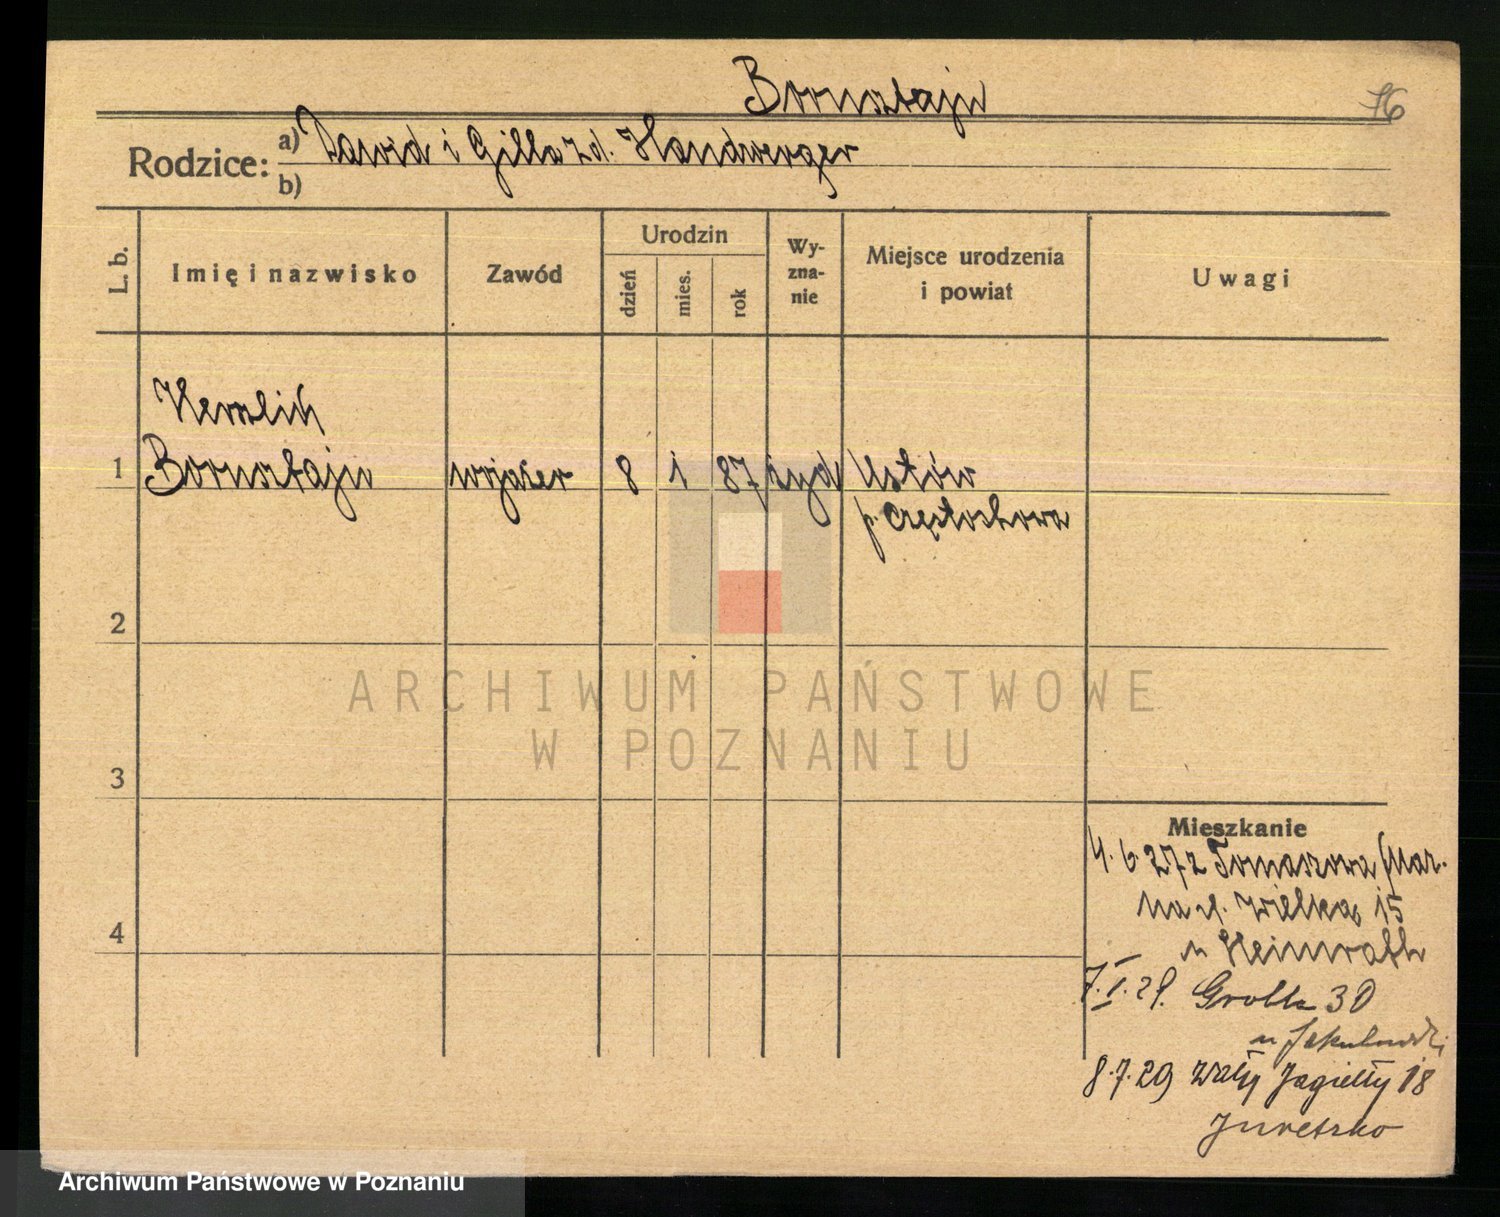 Bornsztajn
76
Rodzice: a) Dawid i Gilla z d. Handwerger
b)
L. b.
Imię i nazwisko
Zawód
Urodzin
dzień
mies.
rok
Wy-
zna-
nie
Miejsce urodzenia
i powiat
Uwagi
Herszlik
1 Bornsztajn wojażer 8 1 87 żyd Ustów
p. Częstochowa
2
3
4
Mieszkanie
4. 6. 27 z Tomaszowa Maz.
na ul. Wielka 15
u Heimrath
7. I. 29. Grobla 30
u
8.7.29 Wały Jagiełły 18
Juretzko
ARCHIWUM PAŃSTWOWE
W POZNANIU
Archiwum Państwowe w Poznaniu